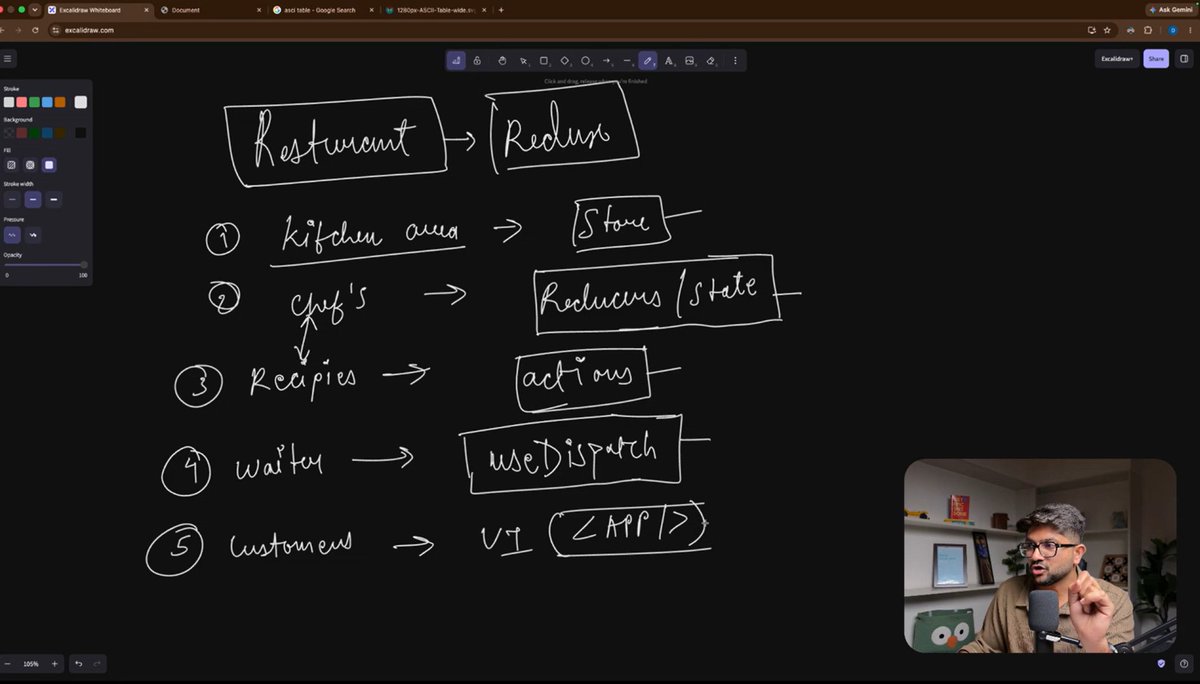 Excalidraw Whiteboard
Document
asci table - Google Search
1280px-ASCII-Table-wide.sv
Ask Gemini
excalidraw.com
Excalidraw+
Share
Click and drag, release when you're finished
Stroke
Background
Fill
Stroke width
Pressure
Opacity
0 100
Resturant → Redux
1 Kitchen area → Store
2 Chef's → Reducers / State
3 Recipies → actions
4 Waiter → useDispatch
5 Customers → UI (<APP/>)
105%